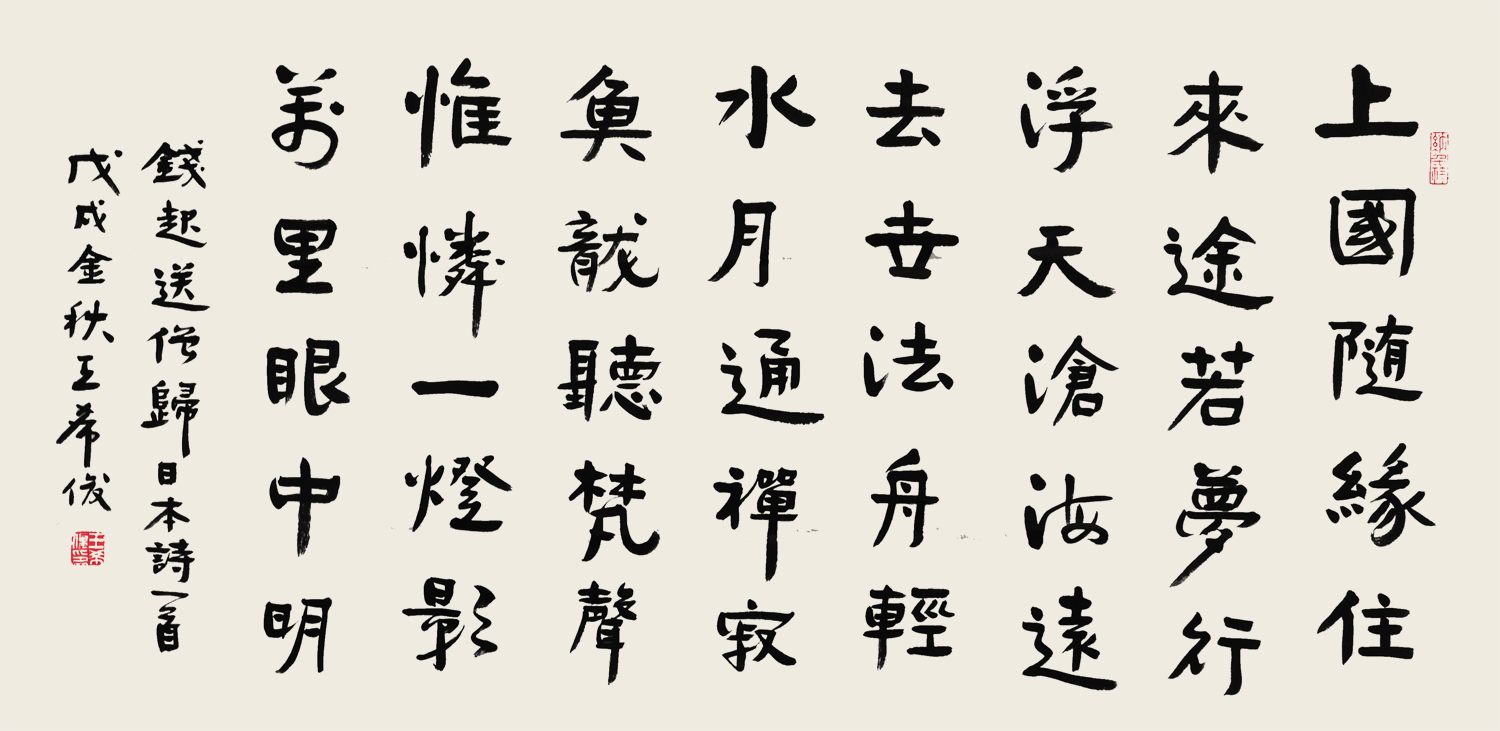 上國随緣住
來途若夢行
浮天滄海遠
去世法舟輕
水月通禪寂
魚龍聽梵聲
惟憐一燈影
萬里眼中明
錢起送僧歸日本詩一首
戊戌金秋王希俊